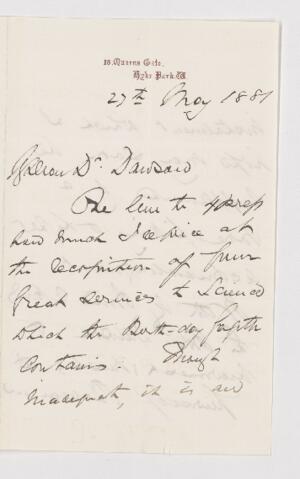 18, Queens Gate,
Hyde Park. W.
27th May 1881
My dear Dr. Dawson
One line to express
how much I rejoice at
the recognition of your
great services to Science
which the Birth-day Gazette
contains. Though
inadequate, it is an